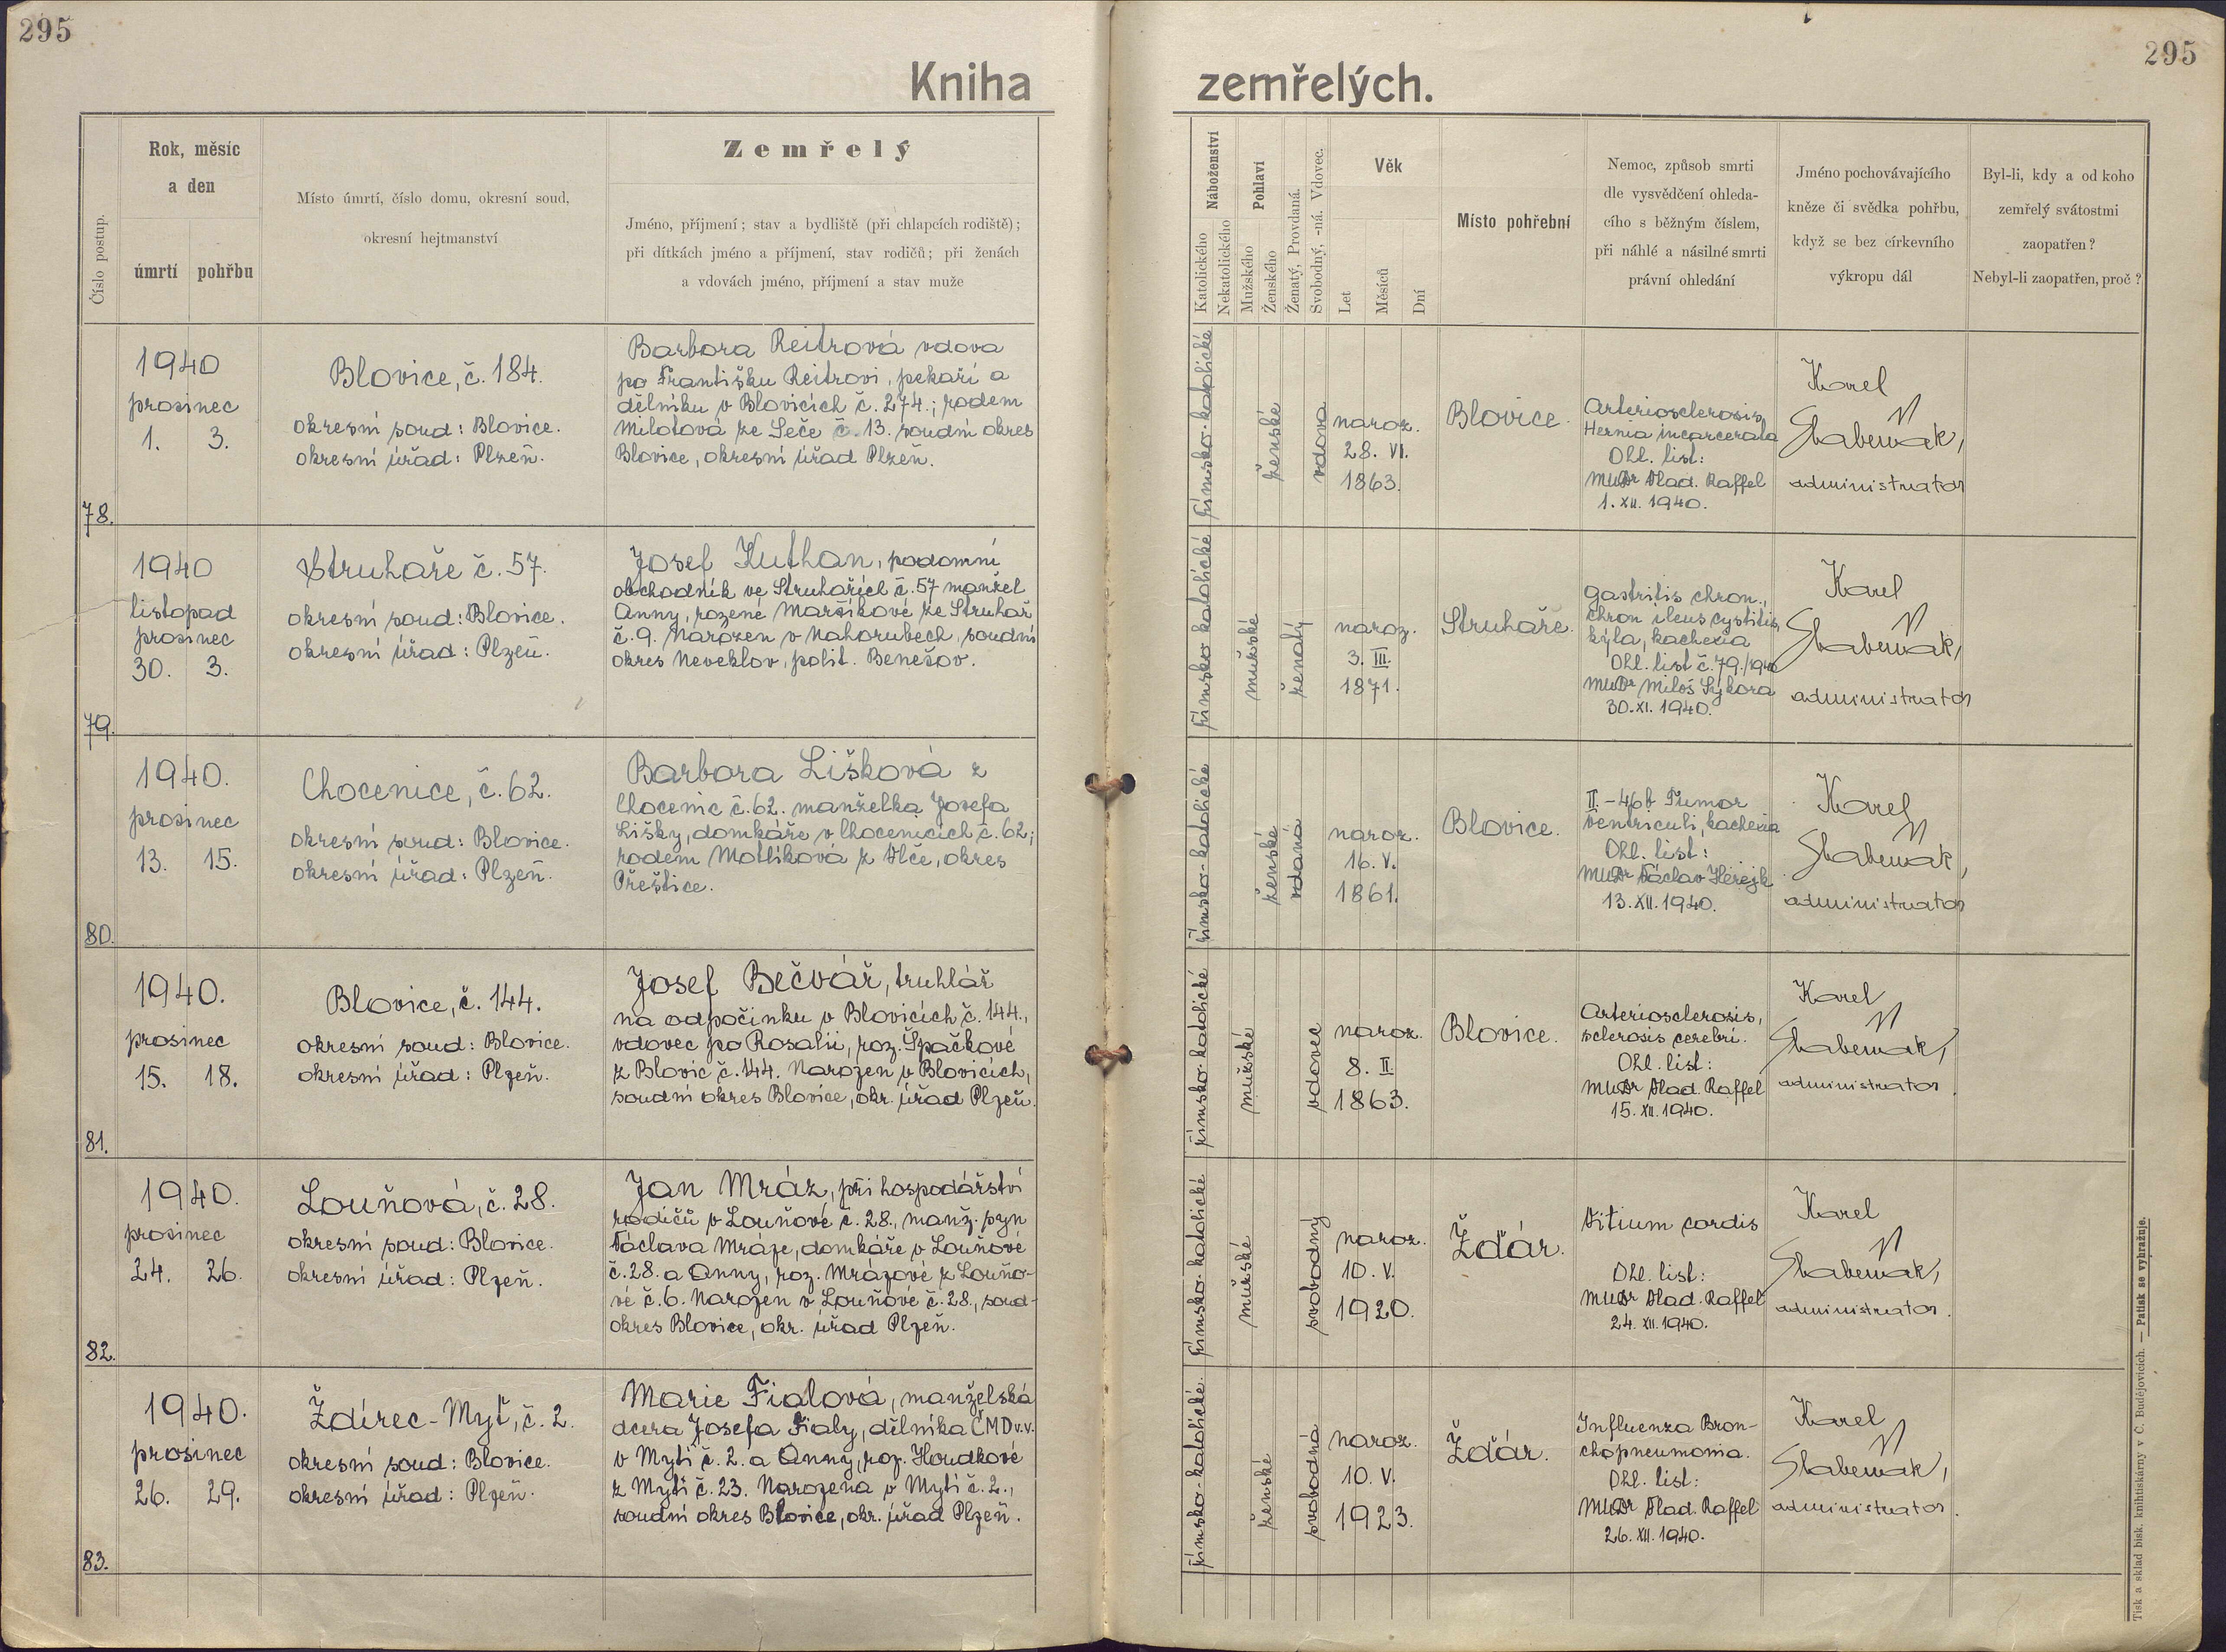 295
295
Kniha zemřelých.
Číslo postup.
Rok, měsíc
a den
úmrtí pohřbu
Místo úmrtí, číslo domu, okresní soud,
okresní hejtmanství
Zemřelý
Jméno, příjmení; stav a bydliště (při chlapcích rodiště);
při dítkách jméno a příjmení, stav rodičů; při ženách
a vdovách jméno, příjmení a stav muže
Náboženství
Katolického
Nekatolického
Pohlaví
Mužského
Ženského
Ženatý, Provdaná.
Svobodný, -ná. Vdovec.
Věk
Let
Měsíců
Dní
Místo pohřební
Nemoc, způsob smrti
dle vysvědčení ohleda-
cího s běžným číslem,
při náhlé a násilné smrti
právní ohledání
Jméno pochovávajícího
kněze či svědka pohřbu,
když se bez církevního
výkropu dál
Byl-li, kdy a od koho
zemřelý svátostmi
zaopatřen?
Nebyl-li zaopatřen, proč?
78.
1940
prosinec
1. 3.
Blovice, č. 184.
okresní soud: Blovice.
okresní úřad: Plzeň.
Barbora Reitrová vdova
po Františku Reitrovi, pekaři a
dělníku v Blovicích č. 274.; rodem
Milotová ze Seče č. 13. soudní okres
Blovice, okresní úřad Plzeň.
římsko-katolické
ženské
vdova
naroz.
28. VI.
1863.
Blovice.
Arteriosclerosis,
Hernia incarcerata
Ohl. list:
MUDr Vlad. Raffel
1. XII. 1940.
Karel
administrator
79.
1940
listopad
prosinec
30. 3.
Struhaře č. 57.
okresní soud: Blovice.
okresní úřad: Plzeň.
Josef Kuthan, podomní
obchodník ve Struhařích č. 57 manžel
Anny, rozené Maršíkové ze Struhař
č. 9. Narozen v Nahorubech, soudní
okres Neveklov, polit. Benešov.
římsko katolické
mužské
ženatý
naroz.
3. III.
1871.
Struhaře.
Gastritis chron.,
chron ileus cystitis,
kýla, kachexia
Ohl. list č. 79./1940
MUDr Miloš Sýkora
30. XI. 1940.
Karel
administrator
80.
1940.
prosinec
13. 15.
Chocenice, č. 62.
okresní soud: Blovice.
okresní úřad: Plzeň.
Barbora Lišková z
Chocenic č. 62. manželka Josefa
Lišky, domkáře v Chocenicích č. 62;
rodem Motlíková z Vlče, okres
Přeštice.
římsko-katolické
ženské
vdaná
naroz.
16. V.
1861.
Blovice.
II. - 46b Tumor
ventriculi, kachexia
Ohl. list:
MUDr Václav
13. XII. 1940.
Karel
administrator
81.
1940.
prosinec
15. 18.
Blovice, č. 144.
okresní soud: Blovice.
okresní úřad: Plzeň.
Josef Bečvář, truhlář
na odpočinku v Blovicích č. 144.,
vdovec po Rosalii, roz. Špačkové
z Blovic č. 144. Narozen v Blovicích,
soudní okres Blovice, okr. úřad Plzeň.
římsko-katolické
mužské
vdovec
naroz.
8. II.
1863.
Blovice.
Arteriosclerosis,
sclerosis cerebri.
Ohl. list:
MUDr Vlad. Raffel
15. XII. 1940.
Karel
administrator.
82.
1940.
prosinec
24. 26.
Louňová, č. 28.
okresní soud: Blovice.
okresní úřad: Plzeň.
Jan Mráz, při hospodářství
rodičů v Louňové č. 28., manž. syn
Václava Mráze, domkáře v Louňové
č. 28. a Anny, roz. Mrázové z Louňo-
vé č. 6. Narozen v Louňové č. 28., soud-
okres Blovice, okr. úřad Plzeň.
římsko-katolické
mužské
svobodný
naroz.
10. V.
1920.
Žďár.
Vitium cordis
Ohl. list:
MUDr Vlad. Raffel
24. XII. 1940.
Karel
administrator.
83.
1940.
prosinec
26. 29.
Ždírec-Myť, č. 2.
okresní soud: Blovice.
okresní úřad: Plzeň.
Marie Fialová, manželská
dcera Josefa Fialy, dělníka ČMD v.v.
v Myti č. 2. a Anny, roz. Houdkové
z Myti č. 23. Narozena v Myti č. 2.,
soudní okres Blovice, okr. úřad Plzeň.
římsko-katolické.
ženské
svobodná
naroz.
10. V.
1923.
Žďár.
Influenza Bron-
chopneumonia.
Ohl. list:
MUDr Vlad. Raffel
26. XII. 1940.
Karel
administrator.
Tisk a sklad bisk. knihtiskárny v Č. Budějovicích. — Patisk se vyhražuje.